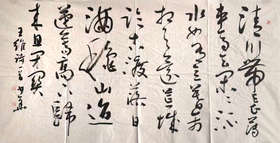 清川帶長薄
車馬去閑閑流
水如有意暮禽
相與還荒城
臨古渡落日
滿秋山迢
遞嵩高下歸
來且閉關
王維詩